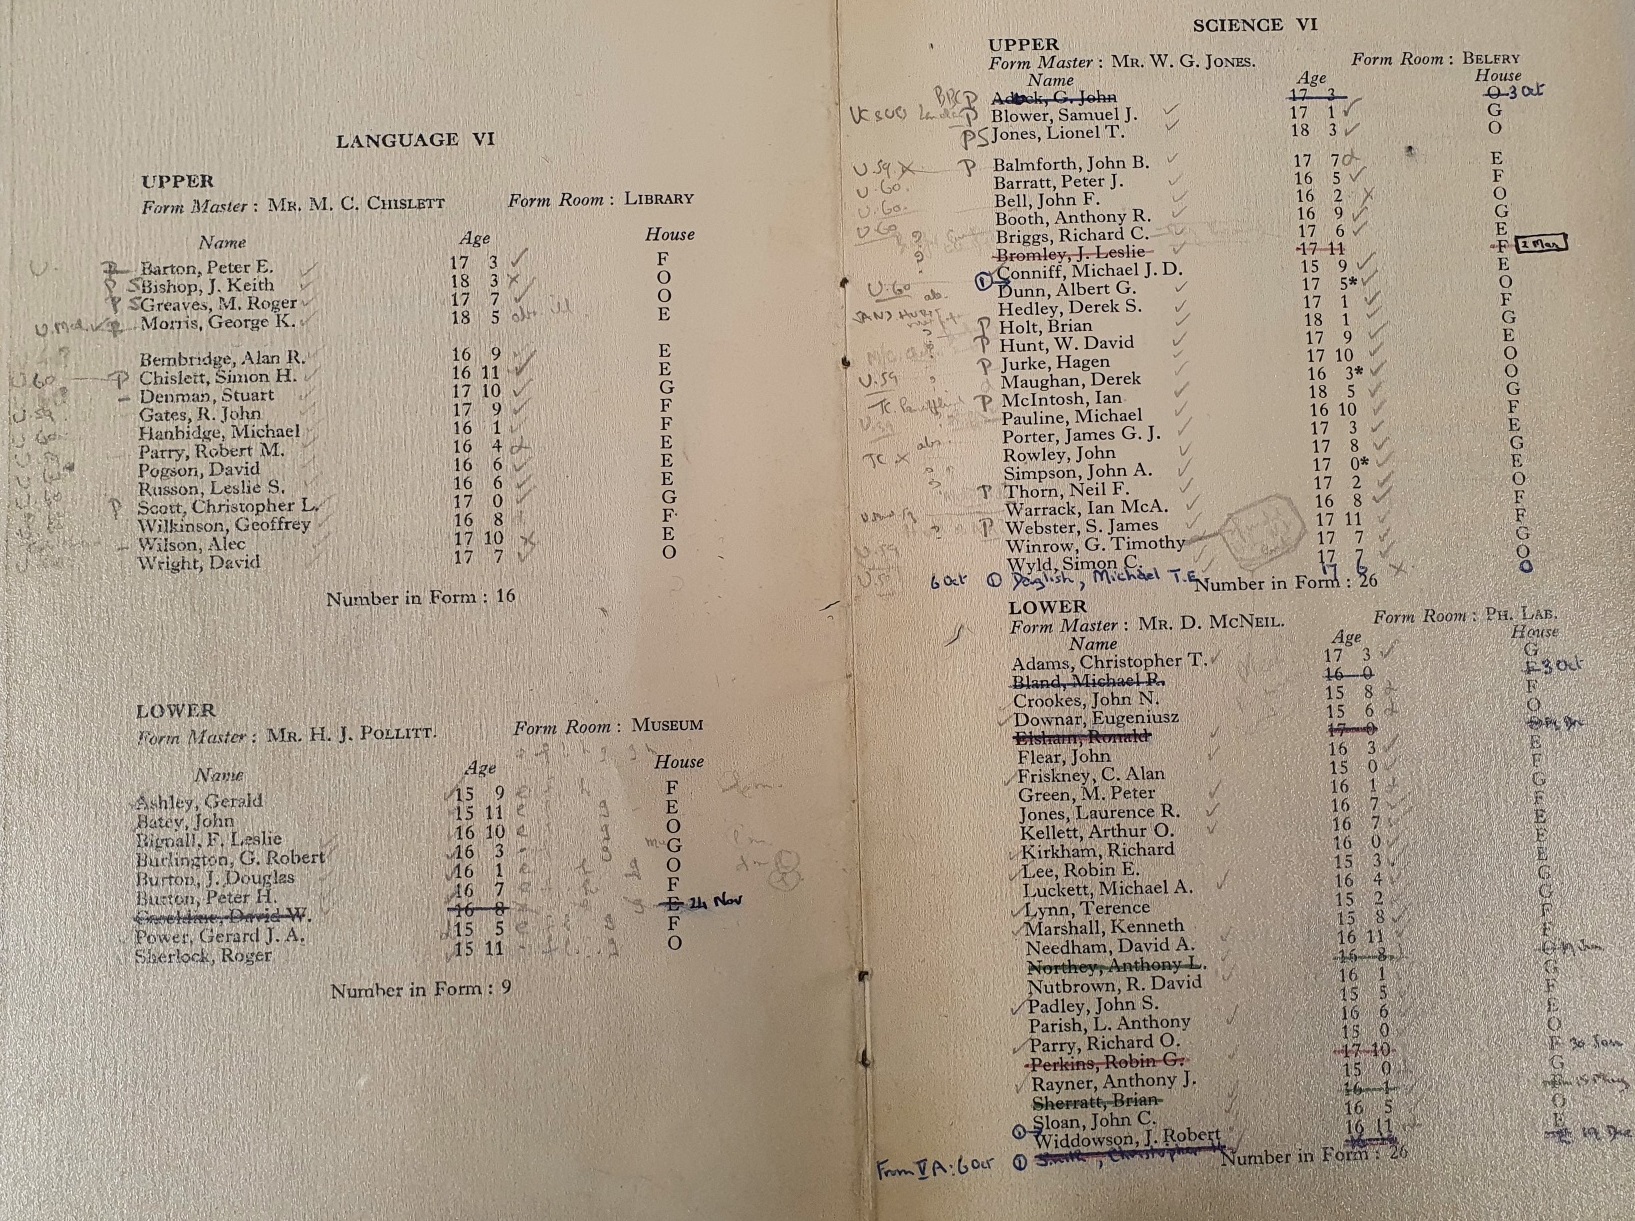 LANGUAGE VI
UPPER
Form Master : MR. M. C. CHISLETT Form Room : LIBRARY
Name Age House
P Barton, Peter E. 17 3 F
P S Bishop, J. Keith 18 3 O
P S Greaves, M. Roger 17 7 O
Morris, George K. 18 5 abs ill E
Bembridge, Alan R. 16 9 E
U.60 P Chislett, Simon H. 16 11 E
Denman, Stuart 17 10 G
Gates, R. John 17 9 F
Hanbidge, Michael 16 1 F
Parry, Robert M. 16 4 E
Pogson, David 16 6 E
Russon, Leslie S. 16 6 E
P Scott, Christopher L. 17 0 G
Wilkinson, Geoffrey 16 8 F
Wilson, Alec 17 10 E
Wright, David 17 7 O
Number in Form : 16
LOWER
Form Master : MR. H. J. POLLITT. Form Room : MUSEUM
Name Age House
Ashley, Gerald 15 9 F
Batey, John 15 11 E
Bignall, F. Leslie 16 10 O
Burlington, G. Robert 16 3 G
Burton, J. Douglas 16 1 O
Burton, Peter H. 16 7 F
David W. 16 8 E 24 Nov
Power, Gerard J. A. 15 5 F
Sherlock, Roger 15 11 O
Number in Form : 9
SCIENCE VI
UPPER
Form Master : MR. W. G. JONES. Form Room : BELFRY
Name Age House
P G. John 17 3 O 3 Oct
P Blower, Samuel J. 17 1 G
PS Jones, Lionel T. 18 3 O
U.59 P Balmforth, John B. 17 7 E
U.60. Barratt, Peter J. 16 5 F
U.60. Bell, John F. 16 2 O
U.60 Booth, Anthony R. 16 9 G
Briggs, Richard C. 17 6 E
Bromley, J. Leslie 17 11 F 2 Mar
Conniff, Michael J. D. 15 9 E
U.60 Dunn, Albert G. 17 5* O
Hedley, Derek S. 17 1 F
P Holt, Brian 18 1 G
P Hunt, W. David 17 9 E
P Jurke, Hagen 17 10 O
U.59 Maughan, Derek 16 3* O
P McIntosh, Ian 18 5 G
Pauline, Michael 16 10 F
Porter, James G. J. 17 3 E
Rowley, John 17 8 G
Simpson, John A. 17 0* E
P Thorn, Neil F. 17 2 O
Warrack, Ian McA. 16 8 F
P Webster, S. James 17 11 F
Winrow, G. Timothy 17 7 G
Wyld, Simon C. 17 7 O
6 Oct ① Daglish, Michael T.E. 17 6 O
Number in Form : 26
LOWER
Form Master : MR. D. MCNEIL. Form Room : PH. LAB.
Name Age House
Adams, Christopher T. 17 3 G
Bland, Michael R. 16 0 F 3 Oct
Crookes, John N. 15 8 F
Downar, Eugeniusz 15 6 O
Elsham, Ronald 17 0
Flear, John 16 3 E
Friskney, C. Alan 15 0 F
Green, M. Peter 16 1 G
Jones, Laurence R. 16 7 F
Kellett, Arthur O. 16 7 E
Kirkham, Richard 16 0 E
Lee, Robin E. 15 3 E
Luckett, Michael A. 16 4 G
Lynn, Terence 15 2 G
Marshall, Kenneth 15 8 F
Needham, David A. 16 11 F
Northey, Anthony L. 16 8 O
Nutbrown, R. David 16 1 G
Padley, John S. 15 5 F
Parish, L. Anthony 16 6 E
Parry, Richard O. 15 0 O
Perkins, Robin G. 17 10 F 30 Jan
Rayner, Anthony J. 15 0 G
Sherratt, Brian 16 1
Sloan, John C. 16 5 O
Widdowson, J. Robert 16 11 E
From VA: 6 Oct ① Smith, Christopher
Number in Form : 26